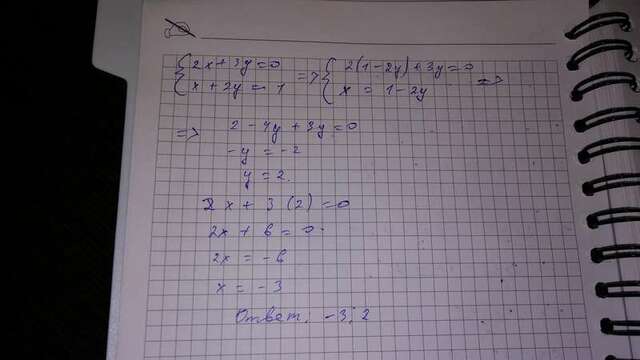 {2x+3y=0 => {2(1-2y)+3y=0 =>
{x+2y=1 {x = 1-2y
=> 2-4y+3y=0
-y=-2
y=2.
2x+3(2)=0
2x+6=0.
2x=-6
x=-3
Ответ: -3; 2